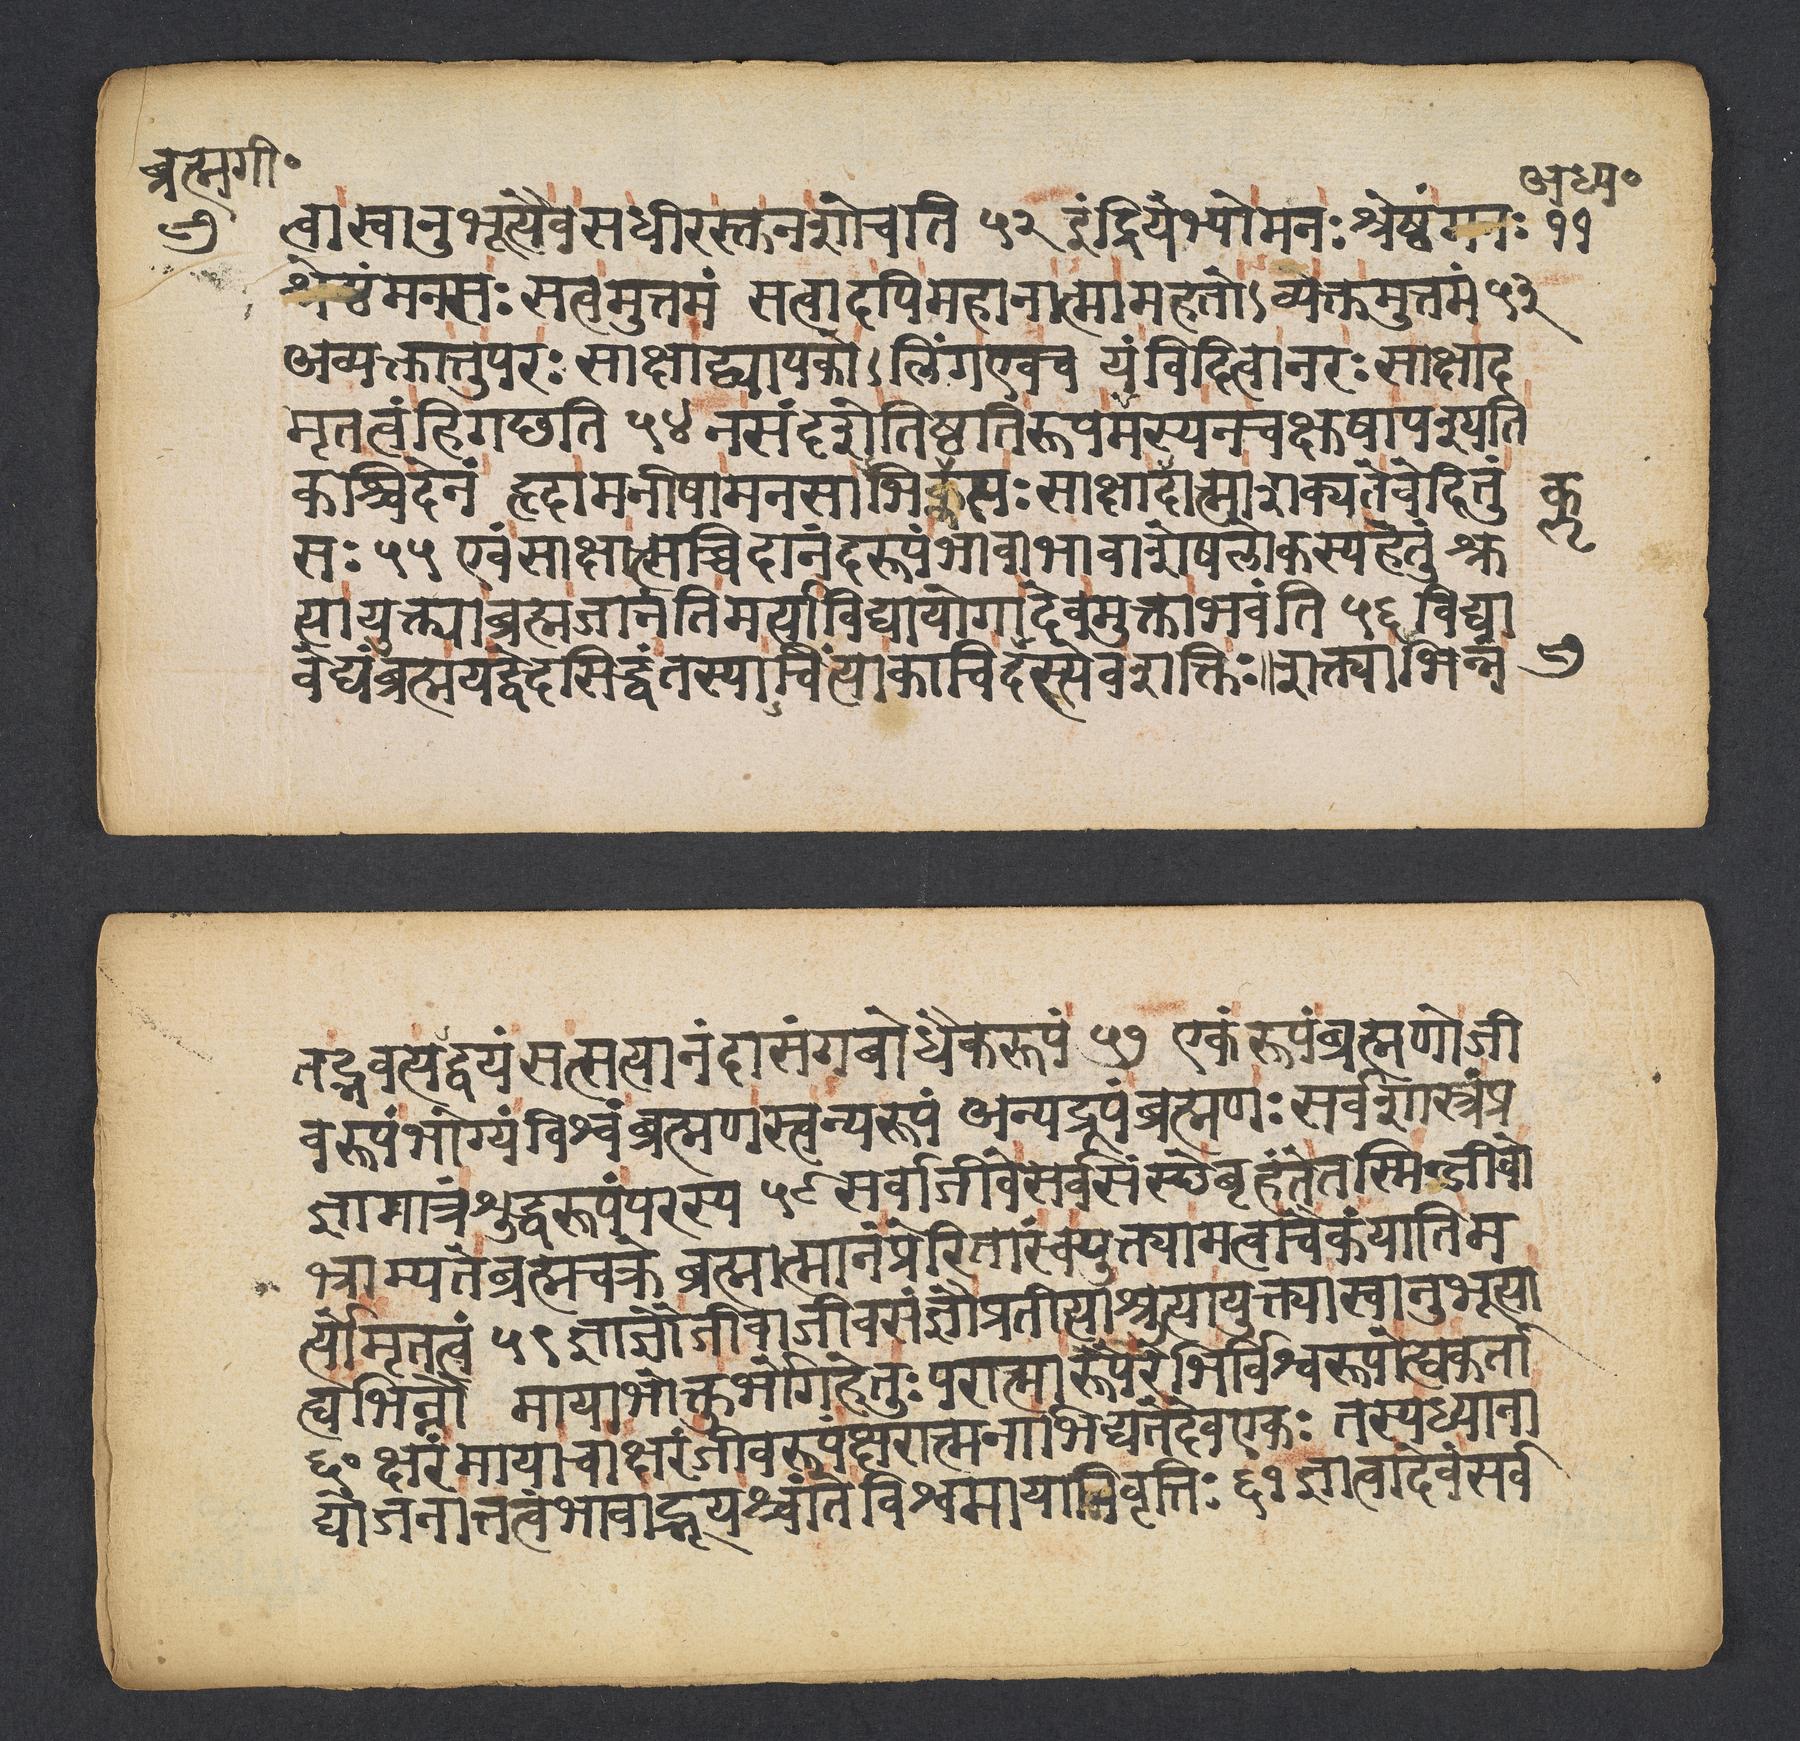 ब्रह्मगी॰
७
अध्य॰
११
त्वा स्वानुभूत्यैव स धीरस्तु न शोचति ५२ इंद्रियेभ्यो मनः श्रेष्ठं मनः
श्रेष्ठं मनसः सत्वमुत्तमं सत्वादपि महानात्मा महतोऽव्यक्तमुत्तमं ५३
अव्यक्तात्तु परः साक्षाद्व्यापकोऽलिंग एव च यं विदित्वा नरः साक्षाद
मृतत्वं हि गछति ५४ न संदृशे तिष्ठति रूपमस्य न चक्षुषा पश्यति
कश्चिदेनं हृदा मनीषा मनसाभिकॢप्तः साक्षादात्मा शक्यते वेदितुं
कॢ
सः ५५ एवं साक्षात्सच्चिदानंदरूपं भावाभावाशेषलोकस्य हेतुं श्रु
त्या युक्त्या ब्रह्म जानंति मर्त्या विद्यायोगादेव मुक्ता भवंति ५६ विद्या
वेद्यं ब्रह्म यद्वेदसिद्धं तस्याचिंत्या काचिदस्त्येव शक्तिः॥शक्त्या भिन्नं
७
तद्भवत्यद्वयं सत्सत्यानंदासंगबोधैकरूपं ५७ एकं रूपं ब्रह्मणो जी
वरूपं भोग्यं विश्वं ब्रह्मणस्त्वन्यरूपं अन्यद्रूपं ब्रह्मणः सर्वशास्त्रं प्र
ज्ञामात्रं शुद्धरूपं परस्य ५८ सर्वाजीवे सर्वसंस्थे बृहंते तस्मिञ्जीवो
भ्राम्यते ब्रह्मचक्रे ब्रह्मात्मानं प्रेरितारंच युक्त्या मत्वा चैकं याति म
र्त्योमृतत्वं ५९ ज्ञाज्ञौ जीवाजीवसंज्ञौ प्रतीत्या श्रुत्या युक्त्या स्वानुभूत्या
ह्यभिन्नौ माया भोक्तुर्भोगहेतुः परात्मा रूपैरेभिर्विश्वरूपो ह्यकर्ता
६० क्षरं माया चाक्षरं जीवरूपं क्षरात्मना भिद्यते देव एकः तस्य ध्याना
द्योजनात्तत्वभावाद्भूयश्चांते विश्वमायानिवृत्तिः ६१ ज्ञात्वा देवं सर्व